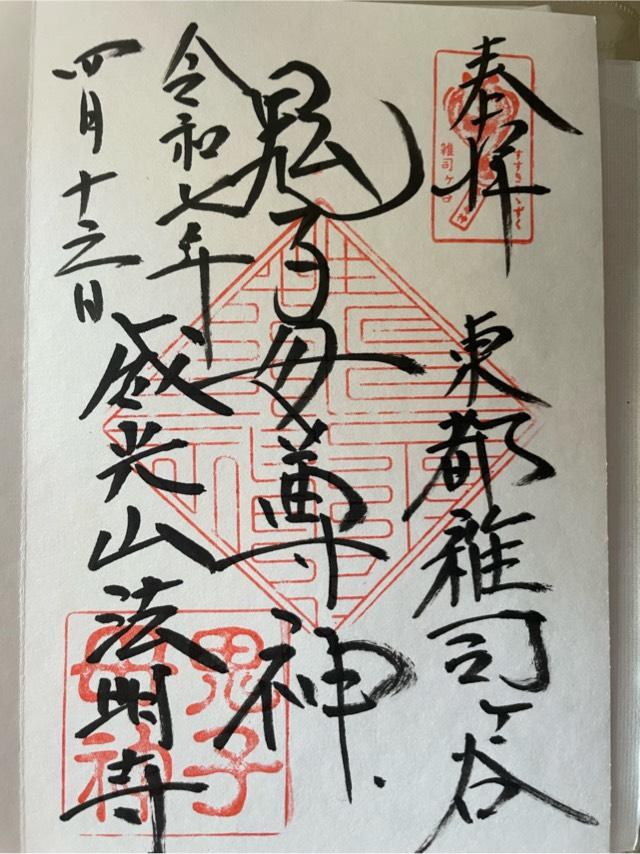 奉拝
すすきみみずく
雑司ヶ谷
東都雑司ヶ谷
鬼子母尊神
令和七年
四月十三日
威光山法明寺
鬼子
母神